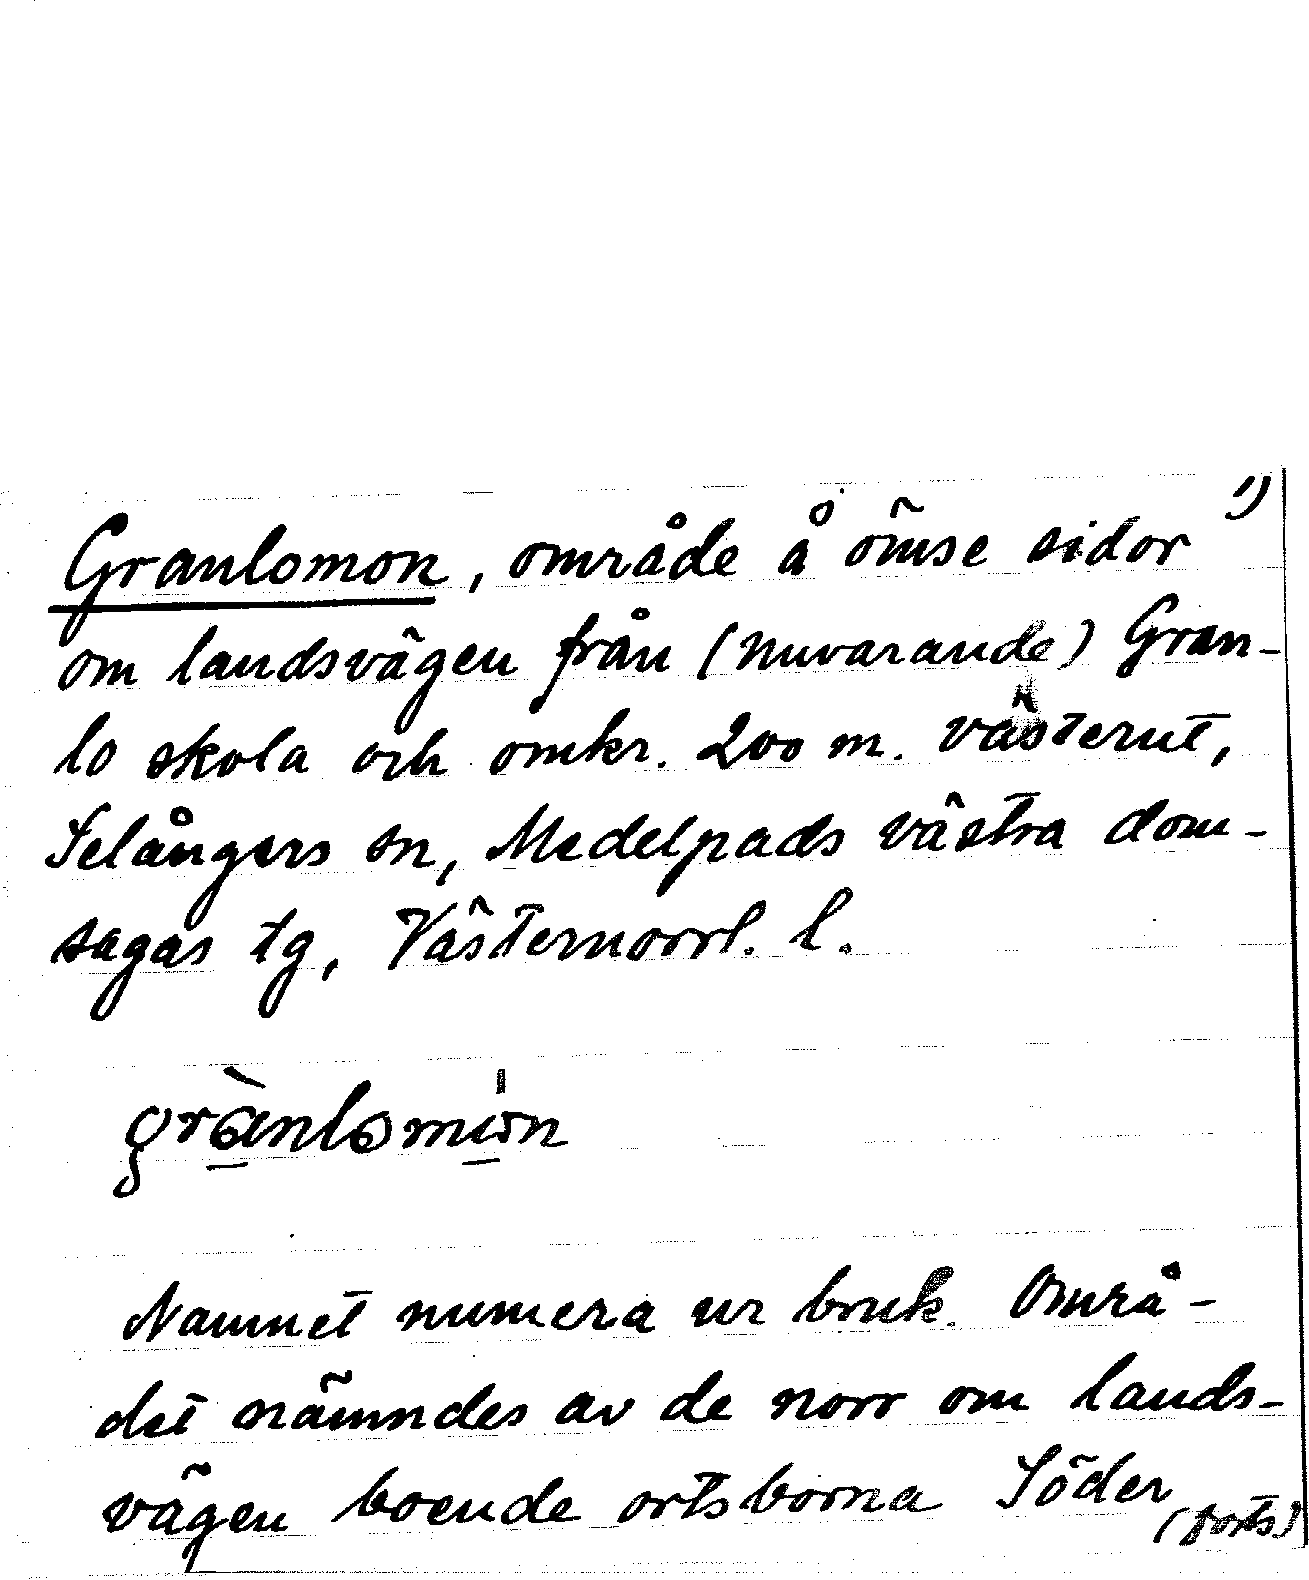 1)
Granlomon, område å ömse sidor
om landsvägen från (nuvarande) Gran-
lo skola och omkr. 200 m. västerut,
Selångers sn, Medelpads västra dom-
sagas tg, Västernorrl. l.
Namnet numera ur bruk. Områ-
det nämndes av de norr om lands-
vägen boende ortsborna Söder
(forts)